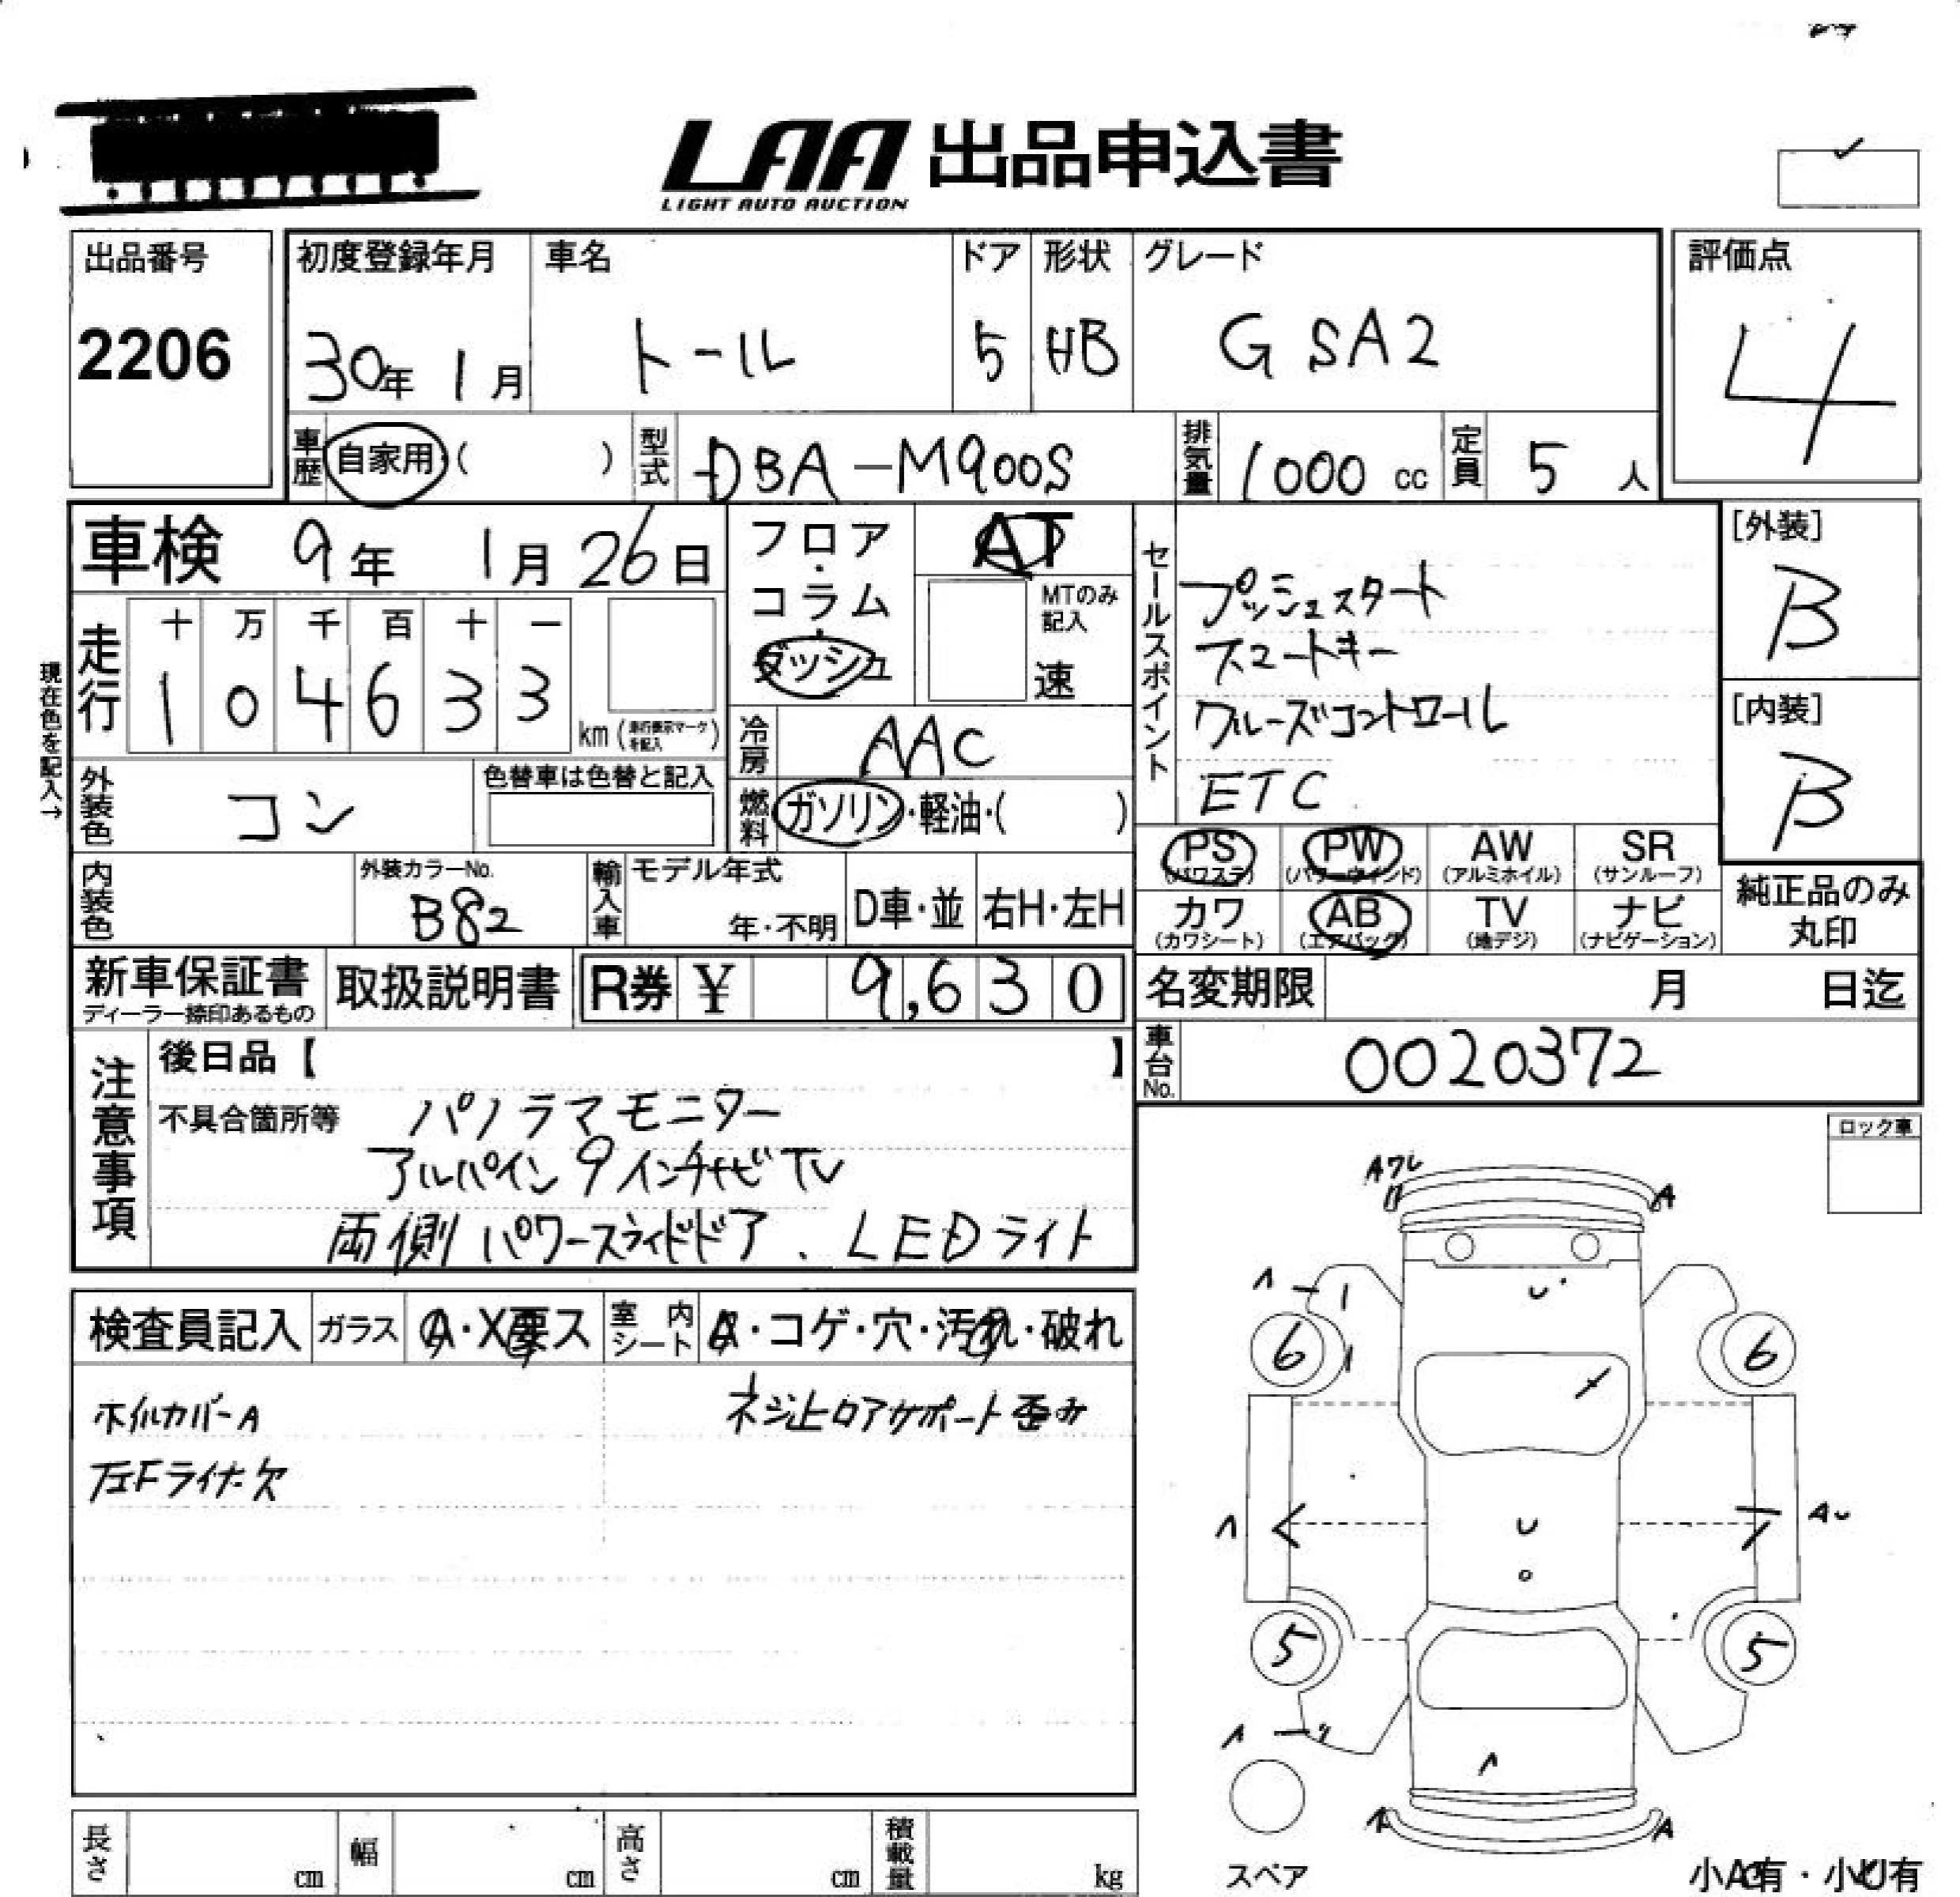 LAA 出品申込書
LIGHT AUTO AUCTION
出品番号
2206
初度登録年月
30年 1月
車名
トール
ドア
5
形状
HB
グレード
G SA2
評価点
4
車歴 自家用 ( )
型式 DBA-M900S
排気量 1000 cc
定員 5 人
車検 9年 1月 26日
フロア・コラム・ダッシュ
AT
MTのみ記入
速
セールスポイント
プッシュスタート
スマートキー
クルーズコントロール
ETC
[外装]
B
[内装]
B
現在色を記入→
走行
十 万 千 百 十 一
1 0 4 6 3 3
km (走行表示マークを記入)
冷房 AAC
外装色 コン
色替車は色替と記入
燃料 ガソリン・軽油・( )
PS (パワステ)
PW (パワーウィンド)
AW (アルミホイル)
SR (サンルーフ)
カワ (カワシート)
AB (エアバッグ)
TV (地デジ)
ナビ (ナビゲーション)
純正品のみ
丸印
内装色
外装カラーNo.
B82
輸入車
モデル年式
年・不明
D車・並
右H・左H
新車保証書
ディーラー捺印あるもの
取扱説明書
R券 ¥ 9,630
名変期限 月 日迄
車台No. 0020372
注意事項
後日品【 】
不具合箇所等 パノラマモニター
アルパイン9インチナビTV
両側パワースライドドア、LEDライト
ロック車
検査員記入
ガラス A・X要ス
室内シート
・コゲ・穴・汚れ・破れ
ホイルカバーA
左Fライナ欠
ネジ止ロアサポート歪み
A
A
6
6
A
5
5
A
スペア
長さ cm
幅 cm
高さ cm
積載量 kg
小A有・小U有